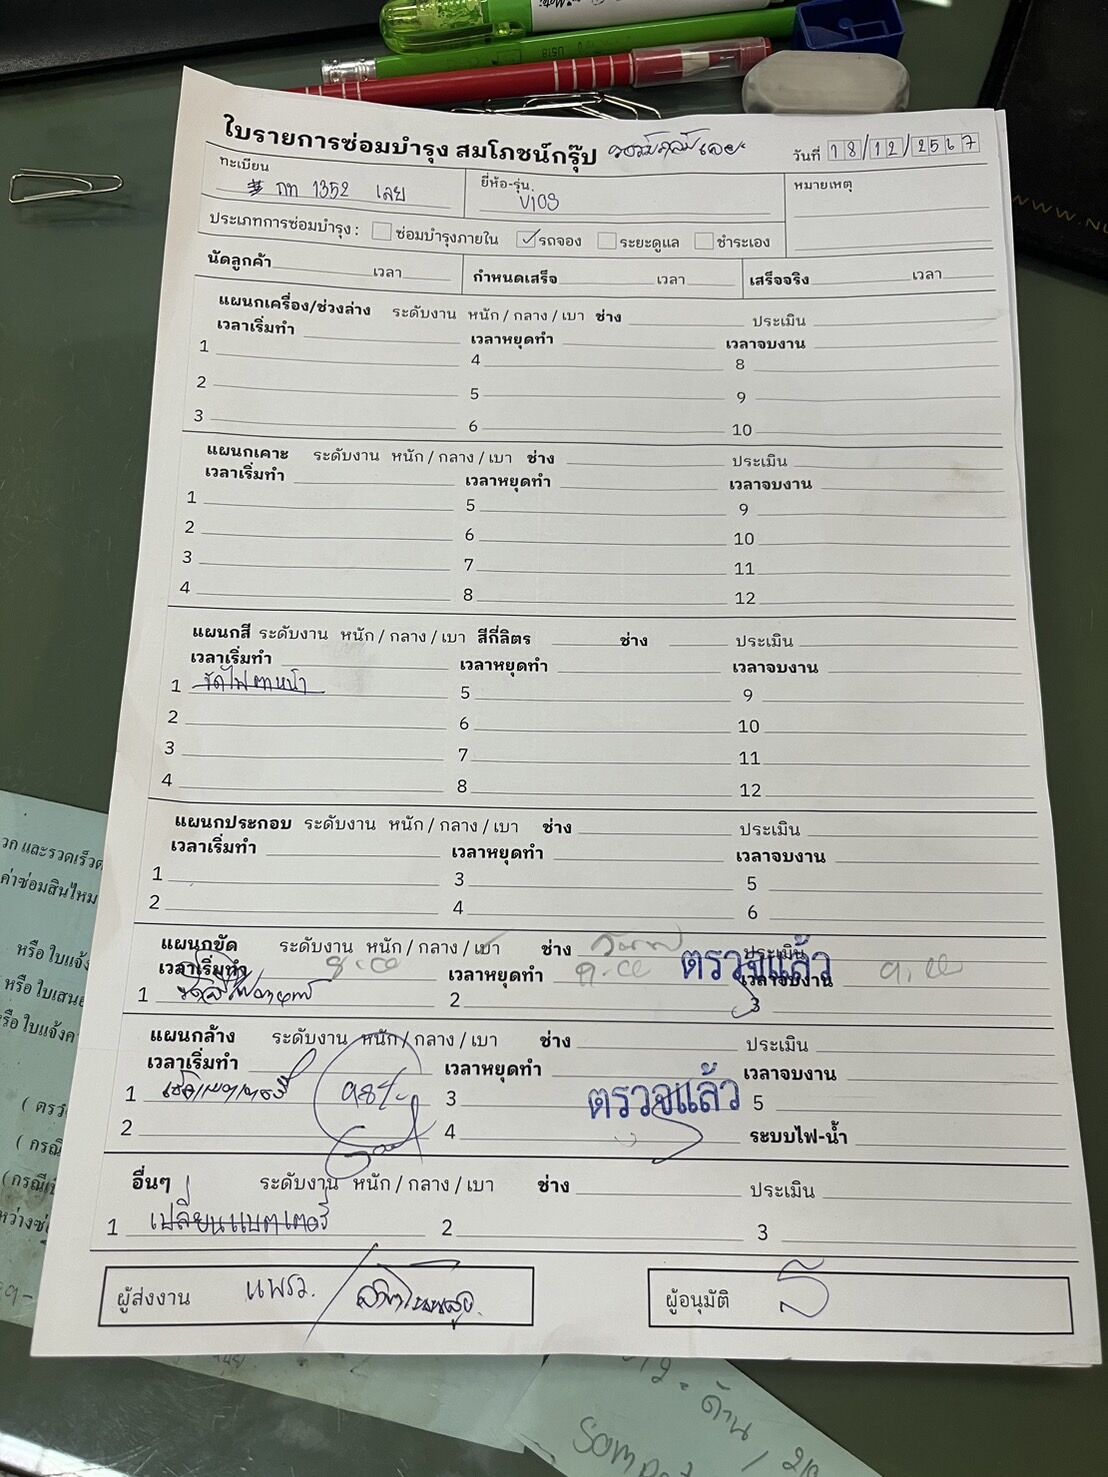 ใบรายการซ่อมบำรุง สมโภชน์กรุ๊ป
วันที่ 18/12/2567
ทะเบียน กท 1352 เลย
ยี่ห้อ-รุ่น. VIOS
หมายเหตุ
ประเภทการซ่อมบำรุง : ซ่อมบำรุงภายใน ✓ รถจอง ระยะดูแล ชำระเอง
นัดลูกค้า เวลา กำหนดเสร็จ เวลา เสร็จจริง เวลา
แผนกเครื่อง/ช่วงล่าง ระดับงาน หนัก / กลาง / เบา ช่าง ประเมิน
เวลาเริ่มทำ เวลาหยุดทำ เวลาจบงาน
1 4 8
2 5 9
3 6 10
แผนกเคาะ ระดับงาน หนัก / กลาง / เบา ช่าง ประเมิน
เวลาเริ่มทำ เวลาหยุดทำ เวลาจบงาน
1 5 9
2 6 10
3 7 11
4 8 12
แผนกสี ระดับงาน หนัก / กลาง / เบา สีกี่ลิตร ช่าง ประเมิน
เวลาเริ่มทำ เวลาหยุดทำ เวลาจบงาน
1 ขัดไฟตาหน้า 5 9
2 6 10
3 7 11
4 8 12
แผนกประกอบ ระดับงาน หนัก / กลาง / เบา ช่าง ประเมิน
เวลาเริ่มทำ เวลาหยุดทำ เวลาจบงาน
1 3 5
2 4 6
แผนกขัด ระดับงาน หนัก / กลาง / เบา ช่าง ประเมิน
เวลาเริ่มทำ เวลาหยุดทำ ตรวจแล้ว เวลาจบงาน
1 2 3
แผนกล้าง ระดับงาน หนัก / กลาง / เบา ช่าง ประเมิน
เวลาเริ่มทำ เวลาหยุดทำ เวลาจบงาน
1 3 ตรวจแล้ว 5
2 4 ระบบไฟ-น้ำ
อื่นๆ ระดับงาน หนัก / กลาง / เบา ช่าง ประเมิน
1 เปลี่ยนแบตเตอรี่ 2 3
ผู้ส่งงาน แพรว. /
ผู้อนุมัติ